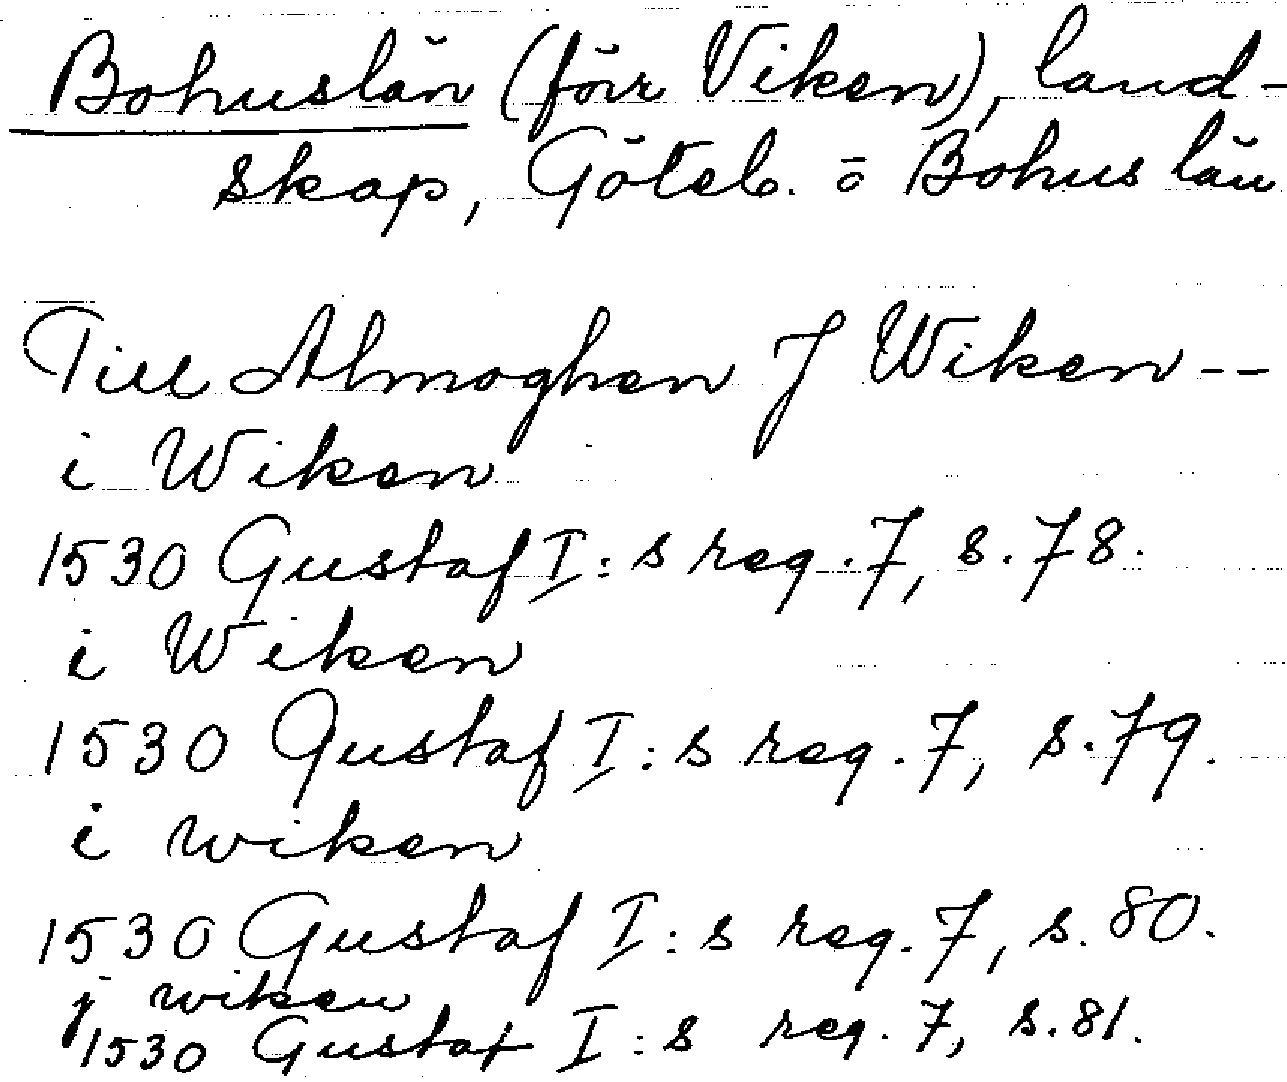 Bohuslän (förr Viken), land-
skap, Göteb. o Bohus län
Till Almoghen J Wiken--
i Wiken
1530 Gustaf I:s reg. 7, s. 78.
i Wiken
1530 Gustaf I:s reg. 7, s. 79.
i wiken
1530 Gustaf I:s reg. 7, s. 80.
j wiken
1530 Gustaf I:s reg. 7, s. 81.